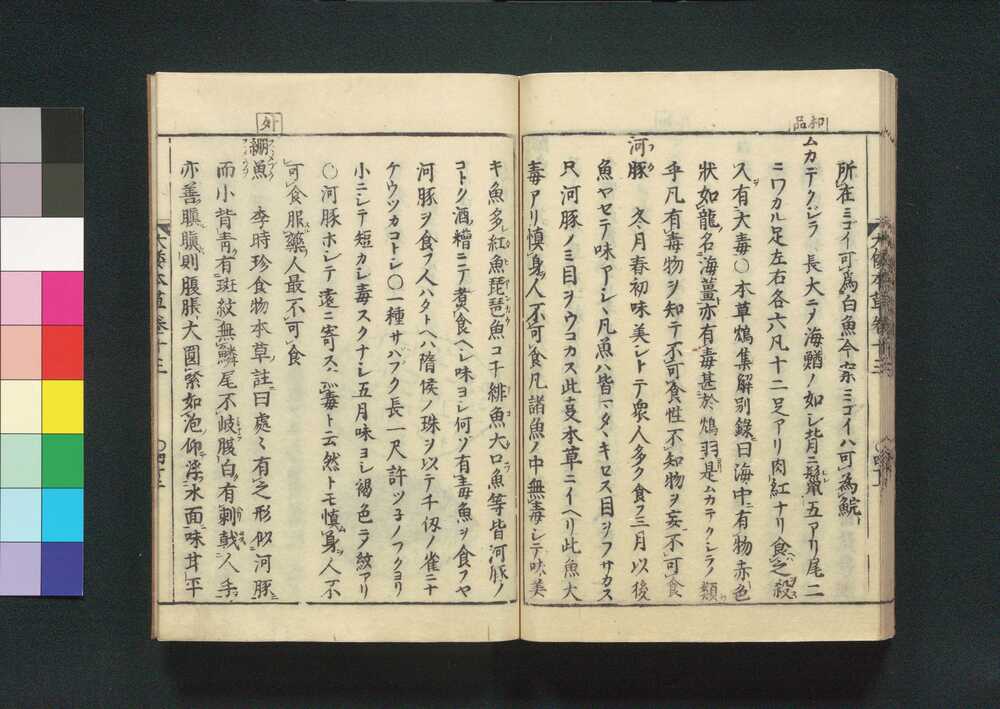 和品
所在ミゴイ可爲白魚今案ミゴイハ可爲鯇
ムカデクジラ 長大ニノ海鰌ノ如シ背ニ鬣五アリ尾二
ニワカル足左右各六凡十二足アリ肉紅ナリ食之殺
人有大毒○本草鴆集解別錄曰海中有物赤色
狀如龍名海薑亦有毒甚於鴆羽是ムカデクジラノ類
乎凡有毒物ヲ知テ不可食性不知物ヲ妄不可食
河豚 冬月春初味美シトテ衆人多ク食フ三月以後
魚ヤセテ味アシ凡魚ハ皆マタヽキセス目ヲフサカス
只河豚ノミ目ヲウコカス此事本草ニイヘリ此魚大
毒アリ慎身人不可食凡諸魚ノ中無毒シテ味美
キ魚多シ紅魚琵琶魚コチ緋魚大口魚等皆河豚ノ
コトク酒糟ニテ煮食ヘシ味ヨシ何ソ有毒魚ヲ食フヤ
河豚ヲ食フ人ハタトヘハ隋侯ノ珠ヲ以テ千仭ノ雀ニナ
ケウツカコトシ○一種サバブク長一尺許ツ子ノフクヨリ
小ニシテ短カシ毒スクナシ五月味ヨシ褐色ラ紋アリ
○河豚ホシテ遠ニ寄スハ無毒ト云然トモ慎身人不
可食服藥人最不可食
外
繝魚 李時珍食物本草註曰處〻有之形似河豚
而小背靑有斑紋無鱗尾不岐腹白有刺戟人手
亦善瞋瞋則腹脹大圓緊如泡仰浮水面味甘平
大倭本草卷十三